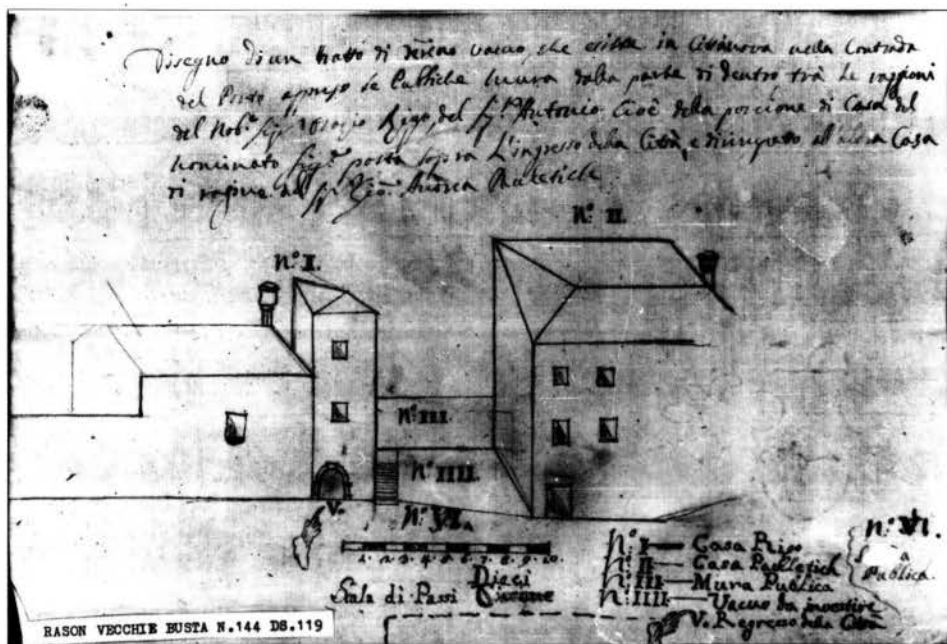 Disegno di un tratto di terreno vacuo, che esiste in Cittanova nella Contrada
del Porto apresso le Publiche mura dalla parte di dentro trà le raggioni
del Nob. Sig. Rigo, del Sig. Antonio Cioè della porcione di Casa del
nominato Sig. posta sopra L'ingresso della Città, e dirimpeto al altra Casa
di ragione del Sig. Gio. Andrea
N.o I.
N.o II.
N.o III.
N.o IIII.
V.
N.o VI.
1. 2. 3. 4. 5. 6. 7. 8. 9. 10.
Scala di Passi Dieci
N.o I Casa Rigo
N.o II Casa
N.o III Mura Publica
N.o IIII Vacuo da investire
V. Regresso della Città
N.o VI.
a
Publica.
RASON VECCHIE BUSTA N.144 DS.119